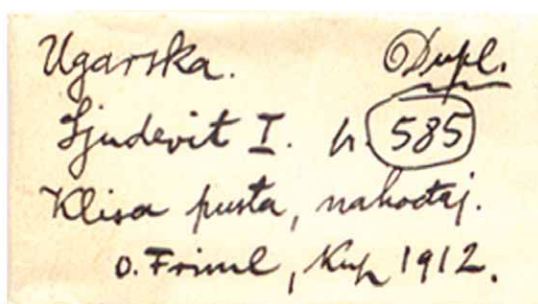 Ugarska. Dupl.
Ljudevit I. h. 585
Klisa pusta, nahodaj.
o. Friml, Kup 1912.